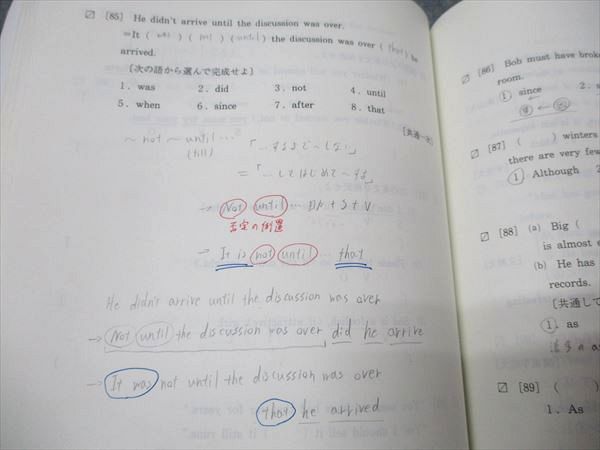 [85] He didn't arrive until the discussion was over.
=It ( was ) ( not ) ( until ) the discussion was over ( that ) he
arrived.
〔次の語から選んで完成せよ〕
1. was 2. did 3. not 4. until
5. when 6. since 7. after 8. that
〔共通一次〕
~ not ~ until …
(till)
「…するまで~しない」
=「…してはじめて~する」
→ Not until … 助 + S + V
否定の倒置
→ It is not until that
He didn't arrive until the discussion was over
→ Not until the discussion was over did he arrive
→ It was not until the discussion was over
that he arrived
[86] Bob must have brok
room.
① since 2.
[87] ( ) winters
there are very few
① Although 2
[88] (a) Big (
is almost
(b) He has
records.
〔共通して
①. as
[89] ( )
1. As